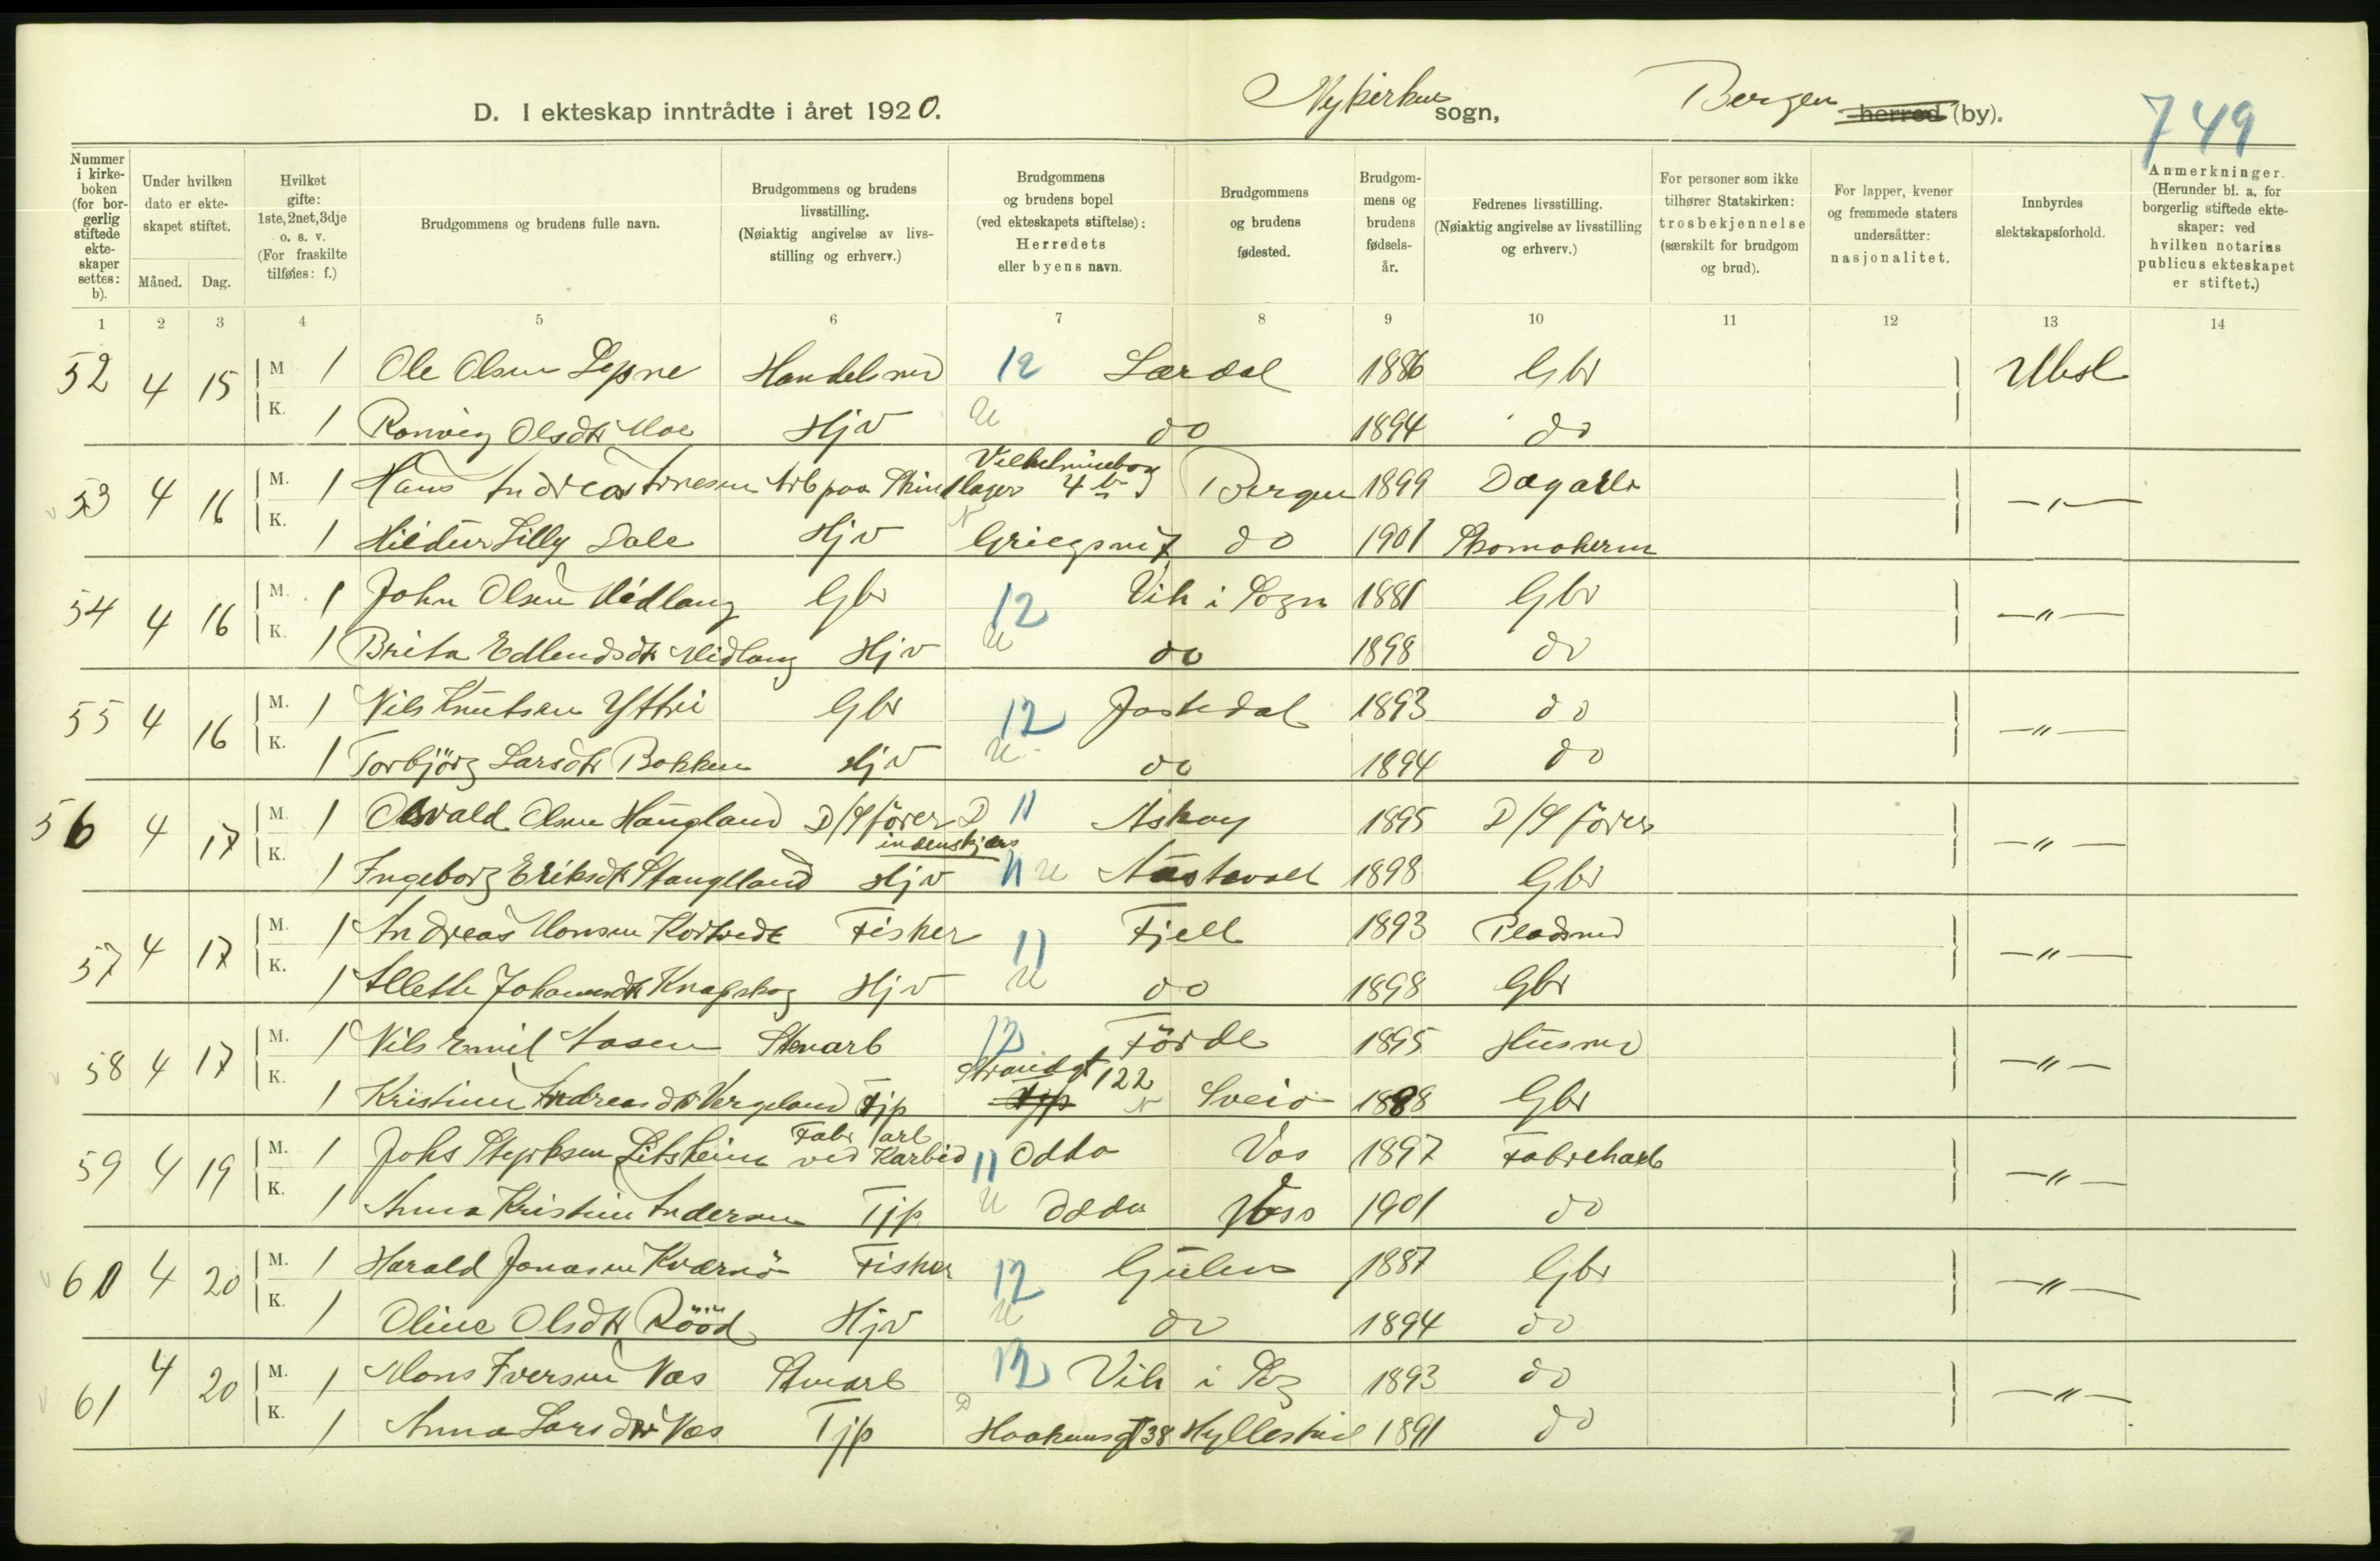 D. I ekteskap inntrådte i året 1920. Nykirkens sogn, Bergen herred (by). 749
Nummer i kirkeboken (for borgerlig stiftede ekteskaper settes: b). Under hvilken dato er ekteskapet stiftet. Måned. Dag. Hvilket gifte: 1ste, 2net, 3dje o. s. v. (For fraskilte tilføies: f.) Brudgommens og brudens fulle navn. Brudgommens og brudens livsstilling. (Nøiaktig angivelse av livsstilling og erhverv.) Brudgommens og brudens bopel (ved ekteskapets stiftelse): Herredets eller byens navn. Brudgommens og brudens fødested. Brudgommens og brudens fødselsår. Fedrenes livsstilling. (Nøiaktig angivelse av livsstilling og erhverv.) For personer som ikke tilhører Statskirken: trosbekjennelse (særskilt for brudgom og brud). For lapper, kvener og fremmede staters undersåtter: nasjonalitet. Innbyrdes slektskapsforhold. Anmerkninger. (Herunder bl. a. for borgerlig stiftede ekteskaper: ved hvilken notarius publicus ekteskapet er stiftet.)
1 2 3 4 5 6 7 8 9 10 11 12 13 14
52 4 15 M 1 Ole Olsen Lepne Handelsmd 12 Lærdal 1886 Gbr Ubsl
K. 1 Ronveig Olsdtr Moe Hjv U do 1894 do
53 4 16 M. 1 Hans Andreas Arnesen Arb paa Skindlager 4 b Bergen 1899 Dagarb — " —
K. 1 Hildur Lilly Dale Hjv Griegsvei 7 do 1901 Skomakerm
54 4 16 M. 1 John Olsen Midlang Gbr 12 Vik i Sogn 1881 Gbr — " —
K. 1 Brita Edlendsdtr Midlang Hjv U do 1898 do
55 4 16 M. 1 Nils Knutsen Yttri Gbr 12 Jostedal 1893 do — " —
K. 1 Torbjörg Larsdtr Bakken Hjv U do 1894 do
56 4 17 M. 1 Olsen Haugland D/S förer D 11 Askøy 1895 D/S förer — " —
indenskjærs
K. 1 Ingeborg Eriksdtr Stanglland Hjv 11 U Austevoll 1898 Gbr
57 4 17 M. 1 Andreas Monsen Kortvedt Fisker 11 Fjell 1893 Pladsmd — " —
K. 1 Johannesdtr Knapskog Hjv U do 1898 Gbr
58 4 17 M. 1 Nils Emil Aasen Stenarb 12 Förde 1895 Husmd — " —
K. 1 Kristine Andreasdtr Vergeland Tjp Strandgt 122 Tjp Sveio 1888 Gbr
59 4 19 M. 1 Johs Styrksen Litsheim Fabr arb ved Karbid 11 Odda Vos 1897 Fabrikarb — " —
K. 1 Anna Kristine Andersen Tjp U Odda Voss 1901 do
60 4 20 M. 1 Harald Jonasen Kværnö Fisker 12 Gulen 1887 Gbr — " —
K. 1 Oline Olsdtr Rööd Hjv U do 1894 do
61 4 20 M. 1 Mons Iversen Næs Stenarb 12 Vik i Sog 1893 do — " —
K. 1 Anna Larsdtr Næs Tjp D Haakonsgt 38 Hyllestad 1891 do